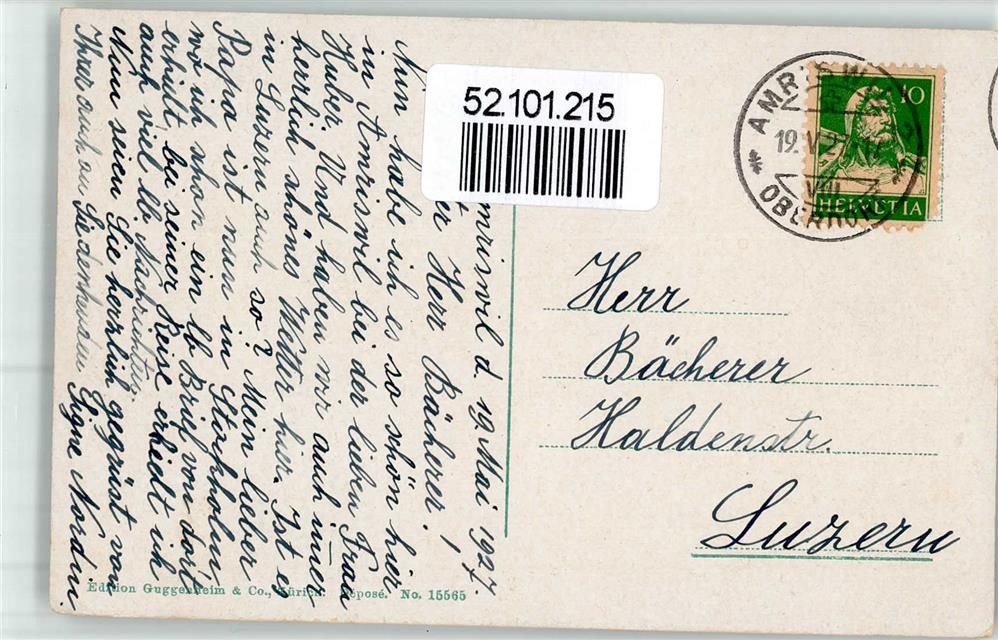 mriswil d 19 Mai 1927.
er Herr Bächerer!
Nun habe ich es so schön hier
in Amriswil bei der lieben Frau
Huber. Und haben wir auch immer
herrlich schönes Wetter hier. Ist es
in Luzern auch so? Mein lieber
Papa ist nun in Stockholm
wo ich schon ein lb Brief von dort
erhielt, bei seiner Reise erhielt ich
auch viel lb. Nachrichten.
Nun seien Sie herzlich gegrüst von
Ihrer auch an Liedenhausen Signe Nordin.
52.101.215
10
HELVETIA
AMRISWIL
19.V.27
VIII
OBERHOF
Herr
Bächerer
Haldenstr.
Luzern
Edition Guggenheim & Co., Zürich. Déposé. No. 15565